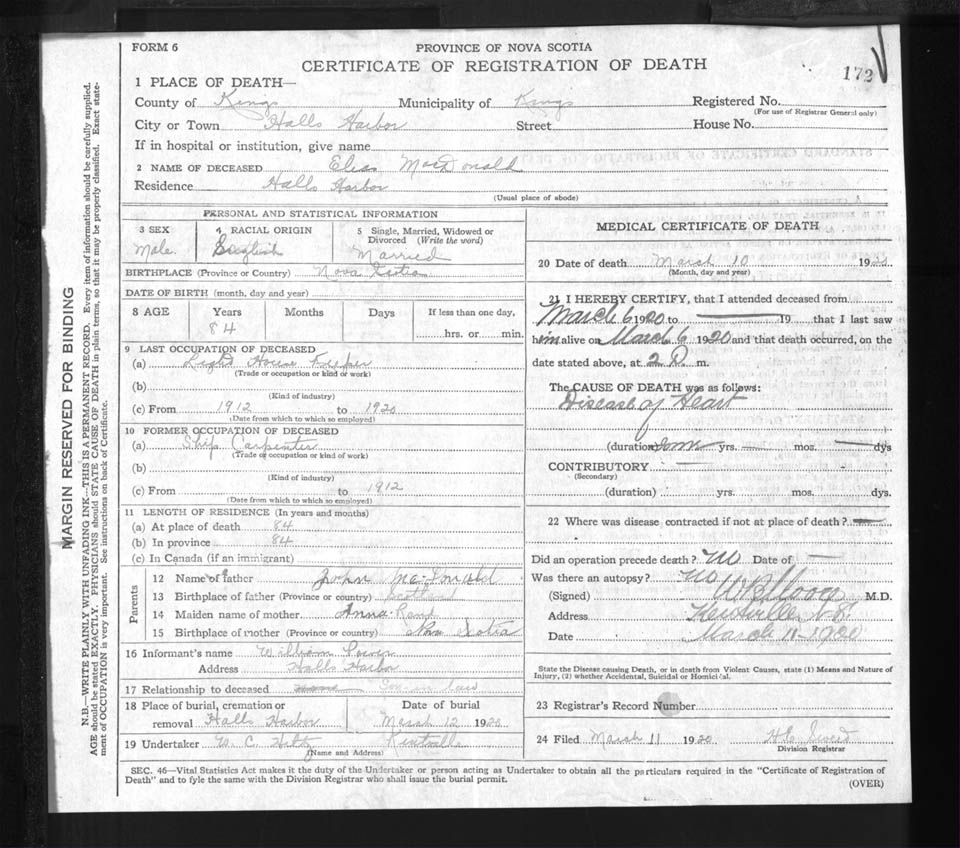 FORM 6
PROVINCE OF NOVA SCOTIA
CERTIFICATE OF REGISTRATION OF DEATH
172
1 PLACE OF DEATH—
County of Kings Municipality of Kings Registered No.
(For use of Registrar General only)
City or Town Halls Harbor Street House No.
If in hospital or institution, give name
2 NAME OF DECEASED Elias MacDonald
Residence Halls Harbor
(Usual place of abode)
PERSONAL AND STATISTICAL INFORMATION
3 SEX 4 RACIAL ORIGIN 5 Single, Married, Widowed or Divorced (Write the word)
Male English Married
BIRTHPLACE (Province or Country) Nova Scotia
DATE OF BIRTH (month, day and year)
8 AGE Years Months Days If less than one day,
84 hrs. or min.
9 LAST OCCUPATION OF DECEASED
(a) Light House Keeper
(Trade or occupation or kind of work)
(b)
(Kind of industry)
(c) From 1912 to 1920
(Date from which to which so employed)
10 FORMER OCCUPATION OF DECEASED
(a) Ship Carpenter
(Trade or occupation or kind of work)
(b)
(Kind of industry)
(c) From to 1912
(Date from which to which so employed)
11 LENGTH OF RESIDENCE (In years and months)
(a) At place of death 84
(b) In province 84
(c) In Canada (if an immigrant)
Parents
12 Name of father John McDonald
13 Birthplace of father (Province or country) Scotland
14 Maiden name of mother Anna Rand
15 Birthplace of mother (Province or country) Nova Scotia
16 Informant's name William
Address Halls Harbor
17 Relationship to deceased Son in law
18 Place of burial, cremation or removal Halls Harbor
Date of burial March 12 1920
19 Undertaker W. C. Kentville
(Name and Address)
MEDICAL CERTIFICATE OF DEATH
20 Date of death March 10 19
(Month, day and year)
21 I HEREBY CERTIFY, that I attended deceased from
March 6 1920 to — 19 that I last saw
him alive on March 6 1920 and that death occurred, on the
date stated above, at 2 P. m.
The CAUSE OF DEATH was as follows:
Disease of Heart
(duration) yrs. — mos. — dys
CONTRIBUTORY —
(Secondary)
(duration) yrs. mos. dys.
22 Where was disease contracted if not at place of death? —
Did an operation precede death? No Date of —
Was there an autopsy? No
(Signed) M.D.
Address Kentville N.S.
Date March 11-1920
State the Disease causing Death, or in death from Violent Causes, state (1) Means and Nature of
Injury, (2) whether Accidental, Suicidal or Homicidal.
23 Registrar's Record Number
24 Filed March 11 1920
Division Registrar
SEC. 46—Vital Statistics Act makes it the duty of the Undertaker or person acting as Undertaker to obtain all the particulars required in the "Certificate of Registration of
Death" and to fyle the same with the Division Registrar who shall issue the burial permit.
(OVER)
MARGIN RESERVED FOR BINDING
N.B.—WRITE PLAINLY WITH UNFADING INK—THIS IS A PERMANENT RECORD. Every item of information should be carefully supplied.
AGE should be stated EXACTLY. PHYSICIANS should STATE CAUSE OF DEATH in plain terms, so that it may be properly classified. Exact state-
ment of OCCUPATION is very important. See instructions on back of Certificate.